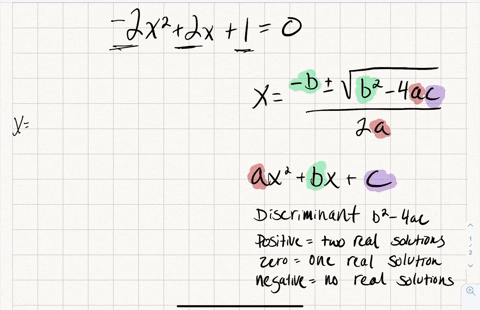 -2x² + 2x + 1 = 0
x = (-b ± √(b² - 4ac)) / 2a
y=
ax² + bx + c
Discriminant b² - 4ac
Positive = two real solutions
zero = one real solution
negative = no real solutions
1
2